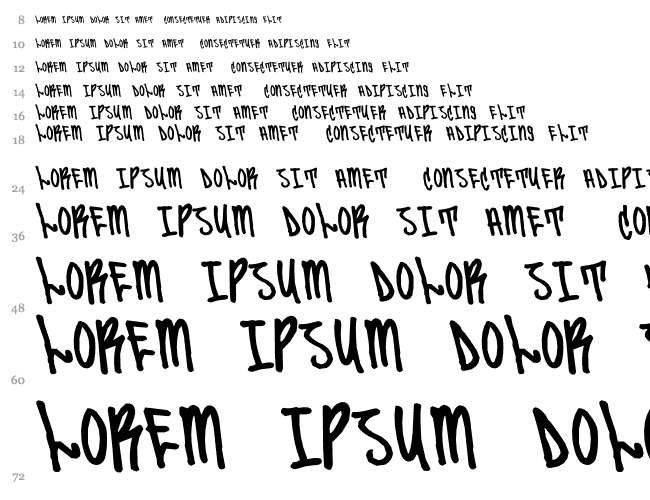 8 LOREM IPSUM DOLOR SIT AMET CONSECTETUER ADIPISCING ELIT
10 LOREM IPSUM DOLOR SIT AMET CONSECTETUER ADIPISCING ELIT
12 LOREM IPSUM DOLOR SIT AMET CONSECTETUER ADIPISCING ELIT
14 LOREM IPSUM DOLOR SIT AMET CONSECTETUER ADIPISCING ELIT
16 LOREM IPSUM DOLOR SIT AMET CONSECTETUER ADIPISCING ELIT
18 LOREM IPSUM DOLOR SIT AMET CONSECTETUER ADIPISCING ELIT
24 LOREM IPSUM DOLOR SIT AMET CONSECTETUER ADIPI
36 LOREM IPSUM DOLOR SIT AMET CO
48 LOREM IPSUM DOLOR SIT
60 LOREM IPSUM DOLOR
72 LOREM IPSUM DOL